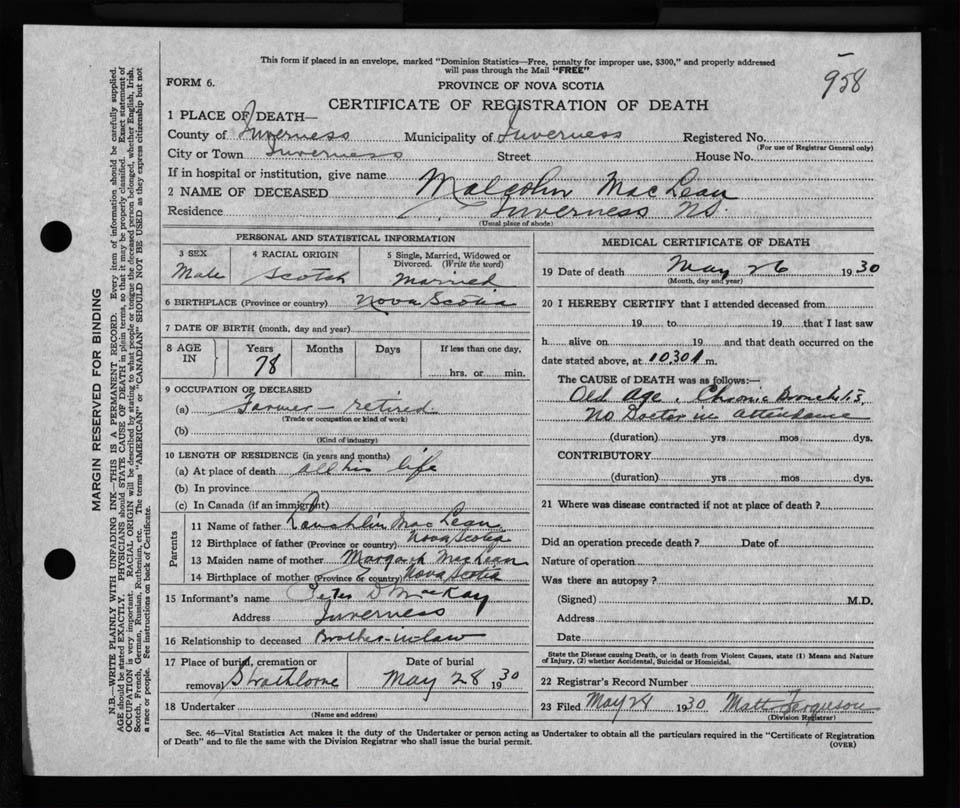 This form if placed in an envelope, marked "Dominion Statistics—Free, penalty for improper use, $300," and properly addressed
will pass through the Mail "FREE"
958
FORM 6.
PROVINCE OF NOVA SCOTIA
CERTIFICATE OF REGISTRATION OF DEATH
1 PLACE OF DEATH—
County of Inverness Municipality of Inverness Registered No.
(For use of Registrar General only)
City or Town Inverness Street House No.
If in hospital or institution, give name
2 NAME OF DECEASED Malcolm MacLean
Residence Inverness NS.
(Usual place of abode)
PERSONAL AND STATISTICAL INFORMATION
3 SEX Male
4 RACIAL ORIGIN Scotch
5 Single, Married, Widowed or
Divorced. (Write the word)
Married
6 BIRTHPLACE (Province or country) Nova Scotia
7 DATE OF BIRTH (month, day and year)
8 AGE IN
Years 78
Months
Days
If less than one day,
hrs. or min.
9 OCCUPATION OF DECEASED
(a) Farmer - retired
(Trade or occupation or kind of work)
(b)
(Kind of industry)
10 LENGTH OF RESIDENCE (in years and months)
(a) At place of death all his life
(b) In province
(c) In Canada (if an immigrant)
Parents
11 Name of father Lauchlin MacLean
12 Birthplace of father (Province or country) Nova Scotia
13 Maiden name of mother Margaret MacLean
14 Birthplace of mother (Province or country) Nova Scotia
15 Informant's name Peter D MacKay
Address Inverness
16 Relationship to deceased Brother-in-law
17 Place of burial, cremation or
removal Strathlorne
Date of burial
May 28 1930
18 Undertaker
(Name and address)
MEDICAL CERTIFICATE OF DEATH
19 Date of death May 26 1930
(Month, day and year)
20 I HEREBY CERTIFY that I attended deceased from
19 to 19 that I last saw
h alive on 19 and that death occurred on the
date stated above, at 10.30 A m.
The CAUSE OF DEATH was as follows:—
Old Age. Chronic Bronchitis,
No Doctor in attendance
(duration) yrs mos dys.
CONTRIBUTORY
(duration) yrs mos dys.
21 Where was disease contracted if not at place of death?
Did an operation precede death? Date of
Nature of operation
Was there an autopsy?
(Signed) M.D.
Address
Date
State the Disease causing Death, or in death from Violent Causes, state (1) Means and Nature
of Injury, (2) whether Accidental, Suicidal or Homicidal.
22 Registrar's Record Number
23 Filed May 28 1930 Matt Ferguson
(Division Registrar)
Sec. 46—Vital Statistics Act makes it the duty of the Undertaker or person acting as Undertaker to obtain all the particulars required in the "Certificate of Registration
of Death" and to file the same with the Division Registrar who shall issue the burial permit.
(OVER)
MARGIN RESERVED FOR BINDING
N.B.—WRITE PLAINLY WITH UNFADING INK—THIS IS A PERMANENT RECORD. Every item of information should be carefully supplied.
AGE should be stated EXACTLY. PHYSICIANS should STATE CAUSE OF DEATH in plain terms, so that it may be properly classified. Exact statement of
OCCUPATION is very important. RACIAL ORIGIN will be described by stating to what people or tongue the deceased person belonged, whether English, Irish,
Scotch, French, German, Russian, Ruthenian, etc. The terms "AMERICAN" or "CANADIAN" SHOULD NOT BE USED as they express citizenship but not
a race or people. See instructions on back of Certificate.